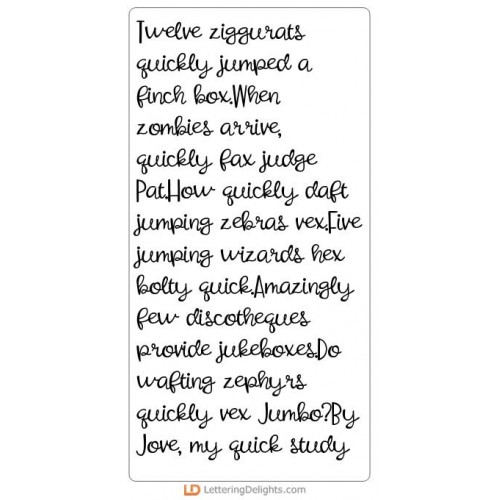 Twelve ziggurats
quickly jumped a
finch box.When
zombies arrive,
quickly fax judge
Pat.How quickly daft
jumping zebras vex.Five
jumping wizards hex
bolty quick.Amazingly
few discotheques
provide jukeboxes.Do
wafting zephyrs
quickly vex Jumbo?By
Jove, my quick study
LD LetteringDelights.com